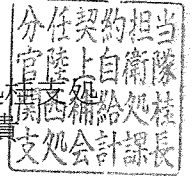 分任契約担当
官陸上自衛隊
関西補給処桂
支処会計課長
桂支処
書